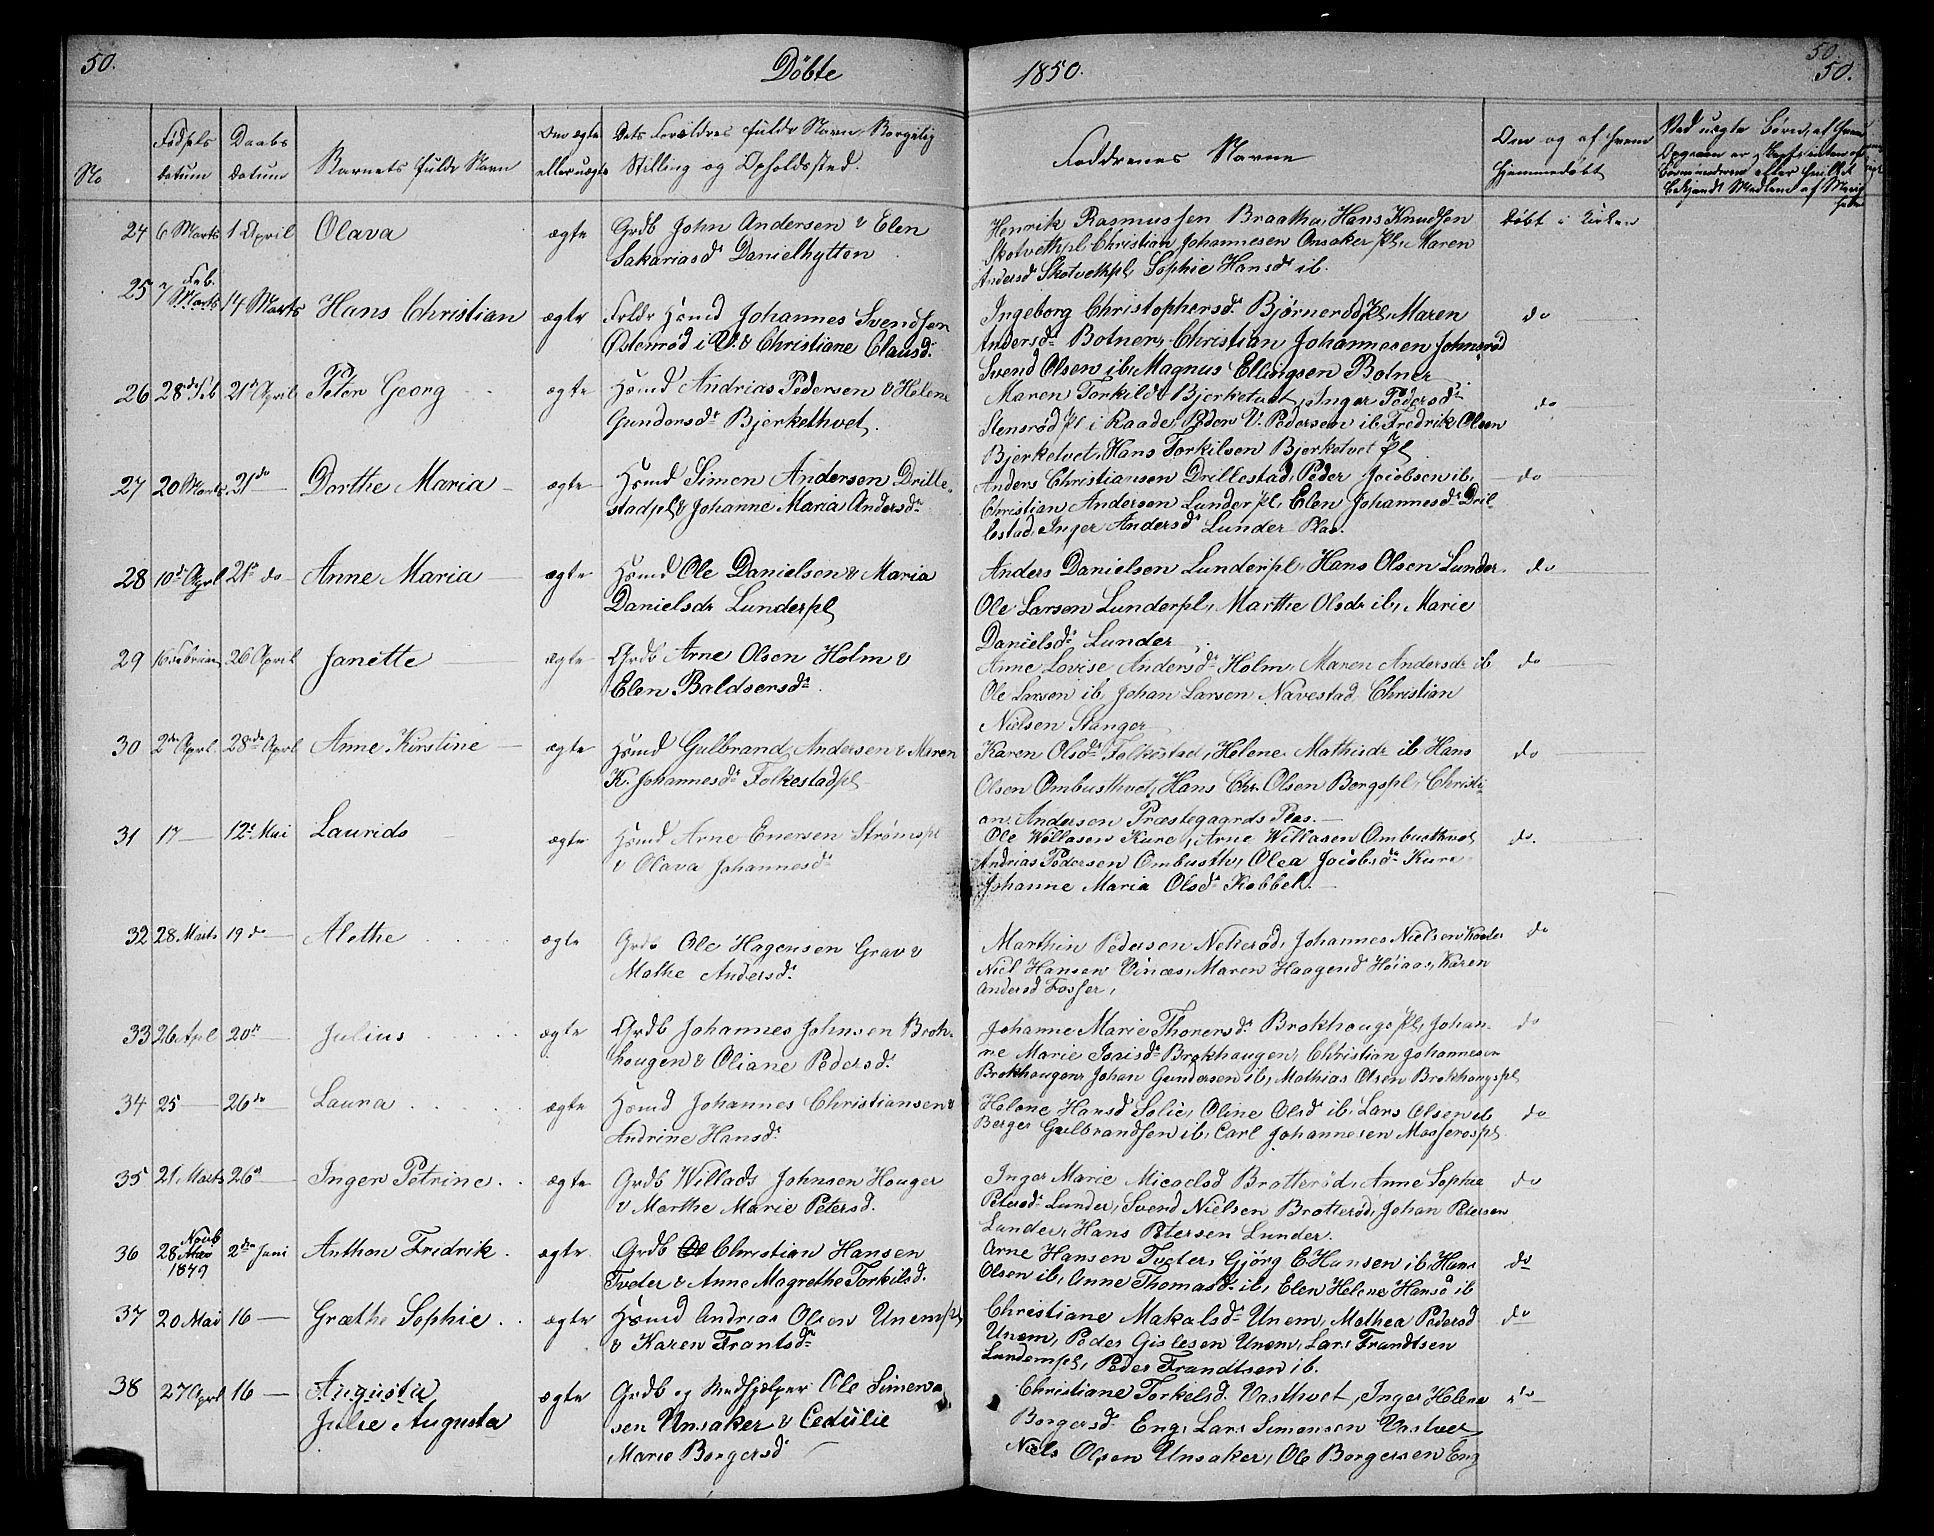 50.
Døbte
1850.
50.
50.
No
Fødsels datum
Daabs datum
Barnets fulde Navn
Om ægte eller uægte
Dets Forældres fulde Navn, Borgelig Stilling og Opholdssted.
Faddrenes Navne
Om og af hvem hjemmedøbt
Ved uægte Børn, af hvem
24 6 Marts 1 April Olava ægte Grdb John Andersen & Elen
Sakariasd Danielhytten
Henrik Rasmussen Braatha, Hans Knudsen
Skotvethpl. Christian Johannesen Onsaker pl. Maren
Andersd Skotvethpl, Sophie Hansd ib.
døbt i Kirken
25 7 Feb. Marts 14 Marts Hans Christian ægte Husmd Johannes Svendsen
Østenrød i & Christiane Clausd.
Ingeborg Christophersd. Bjørnerødpl, Maren
Andersd. Botner, Christian Johannesen Johnsrød
Svend Olsen ib, Magnus Ellingsen Botner
do
26 28de Feb 21d April Peter Georg ægte Husmd Andrias Pedersen & Helene
Gundersd Bjerkethvet.
Maren Torkildd Bjerketvet, Inger Pedersd
Stensrød pl i Raade, Peder V. Pedersen ib. Fredrik Olsen
Bjerketvet, Hans Torkilsen Bjerketvet pl
do
27 20 Marts 21de Dorthe Maria ægte Husmd Simen Andersen Drille-
stadpl & Johanne Maria Andersd
Anders Christiansen Drillestad, Peder Jacobsen ib,
Christian Andersen Lunder pl, Elen Johannesd Dril-
lestad, Inger Andersd Lunder Plas.
do
28 10d Aprl 21d do Anne Maria ægte Husmd Ole Danielsen & Maria
Danielsdr Lunderpl
Anders Danielsen Lunderpl, Hans Olsen Lunder.
Ole Larsen Lunderpl, Marthe Olsdr ib, Marie
Danielsd Lunder
do
29 16 Februar 26 April Janette ægte Grdb Arne Olsen Holm &
Elen Baldsersd.
Anne Lovise Andersd Holm, Maren Andersdr ib
Ole Larsen ib, Johan Larsen Navestad, Christian
Nielsen Stanger
do
30 2de Aprl. 28de Aprl Anne Kirstine ægte Husmd Gulbrand Andersen & Maren
K. Johannesd Folkestadpl
Karen Olsd Folkestad, Helene Mathisdr ib, Hans
Olsen Ombusthvet, Hans Chr. Olsen Borgspl, Christi-
an Andersen Præstegaards Plas.
do
31 17 12d Mai Laurids ægte Husmd Arne Enersen Strømspl
& Olava Johannesd
Ole Willasen Kure, Arne Willasen Ombusthvet
Andrias Pedersen Ombusth, Olea Jacobsd Kure
Johanne Maria Olsd Kobbel.
do.
32 28 Marts 19 do Alethe ægte Grdb Ole Hagensen Grav &
Mathe Andersd.
Marthin Pedersen Nekerød, Johannes Nielsen
Niel Hansen Vinæs, Maren Haagensd Høiaas, Karen
Andersd Fosser,
do
33 26 Apl 20de Julius ægte Grdb Johannes Johnsen Brok-
hougen & Oliane Pedersd.
Johanne Marie Thorersd. Brokhougs pl, Johan-
ne Marie Jonisd Brokhaugen, Christian Johannesen
Brokhougen, Johan Gundersen ib, Mathias Olsen Brokhougspl
do
34 25 26de Laura ægte Husmd Johannes Christiansen &
Andrine Hansd.
Helene Hansd Solie, Oline Olsd ib, Lars Olsen ib
Berger Gulbrandsen ib, Carl Johannesen Mosserospl
do
35 21 Marts 26d Inger Petrine. ægte Grdb Willads Johnsen Houger
& Marthe Marie Petersd.
Inger Marie Micaelsd Bratterød, Anne Sophie
Petersd Lunder, Svend Nielsen Bratterød, Johan Petersen
Lunder, Hans Petersen Lunder.
do
36 28 Novb 1849 2de Juni Anthon Fridrik. ægte. Grdb Christian Hansen
Tveter & Anne Magrethe Torkilsd.
Arne Hansen Tveter, Gjørg E Hansen ib, Hans
Olsen ib, Anne Thomasd ib, Elen Helene Hansd ib
do
37 20 Mai 16 Græthe Sophie. ægte Husmd Andreas Olsen Unempl
& Karen Frantsd
Christiane Makalsd Unem, Mathea Pedersd
Unem, Peder Gislesen Unem, Lars Frandtsen
Lundempl, Peder Frandtsen ib.
do
38 27 Aprl 16 Augusta
Julie Augusta
ægte Grdb og Medhjelper Ole Simen-
sen Unsaker & Cedülie
Marie Borgersd
Christiane Torkelsd. Vasthvet, Inger Helene
Borgersd Eng, Lars Simensen Vastvet
Niels Olsen Unsaker, Ole Borgersen Eng
do